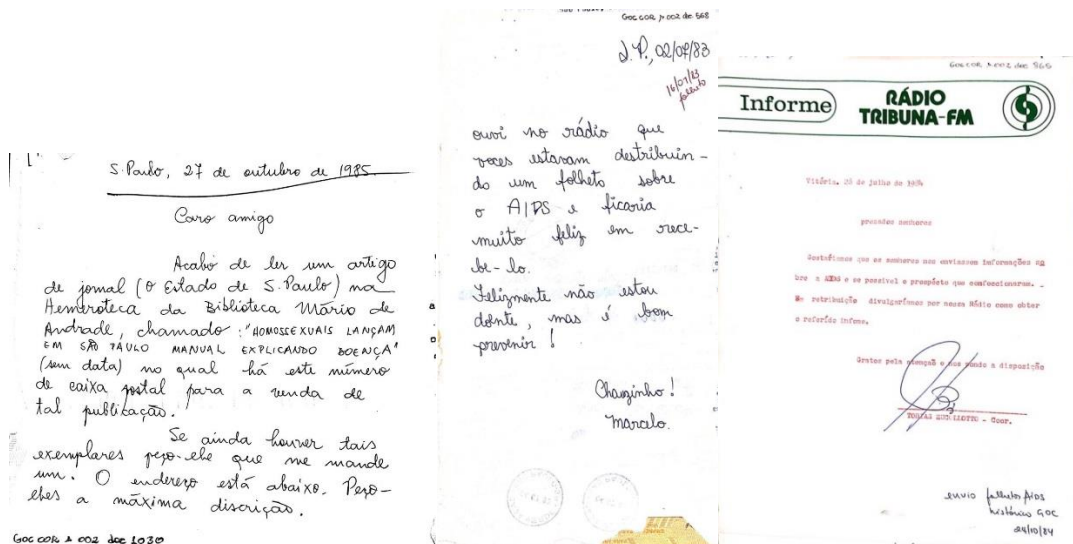 S. Paulo, 27 de outubro de 1985.
Caro amigo
Acabo de ler um artigo
de jornal (O Estado de S. Paulo) na
Hemeroteca da Biblioteca Mário de
Andrade, chamado: "HOMOSSEXUAIS LANÇAM
EM SÃO PAULO MANUAL EXPLICANDO DOENÇA"
(sem data) no qual há este número
de caixa postal para a venda de
tal publicação.
Se ainda houver tais
exemplares peço-lhe que me mande
um. O endereço está abaixo. Peço-
lhes a máxima discrição.
GOC COR 1 002 doc 1030
GOC COR 1 002 doc 568
J.P., 02/07/83
folheto
ouvi no rádio que
voces estavam destribuin-
do um folheto sobre
o AIDS e ficaria
muito feliz em rece-
be-lo.
Felizmente não estou
doente, mas é bom
prevenir!
Chauzinho!
Marcelo.
GOC COR 1 002 doc 565
Informe
RÁDIO
TRIBUNA-FM
Vitória, 20 de julho de 1984
prezados senhores
Gostaríamos que os senhores nos enviassem informações so
bre a AIDS e se possivel o prospéto que confeccionaram. -
Em retribuição divulgariamos por nossa Rádio como obter
o referido informe.
Gratos pela atenção e nos pondo a disposição
TOBIAS - Coor.
envio folhetos Aids
histórico GOC
24/10/84